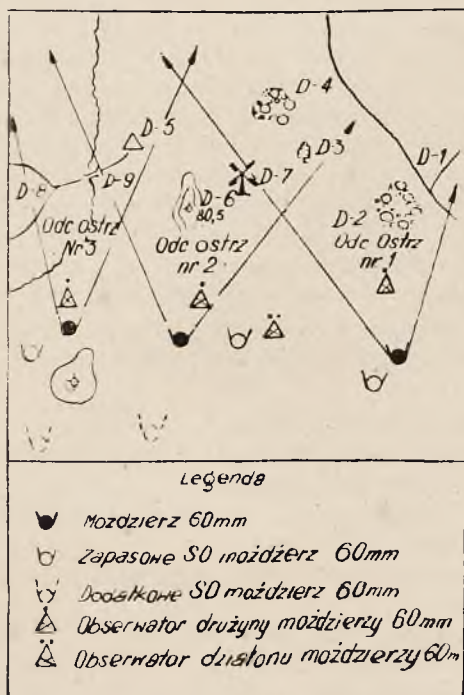 D-4
D-5
D-3
D-1
D-8
D-9
D-7
D-6
80,5
D-2
Odc Ostrz
Nr 3
Odc ostrz
nr 2
Odc Ostrz
nr 1
Legenda
Mozdzierz 60mm
Zapasowe SO moździerz 60mm
Dodatkowe SO moździerz 60mm
Obserwator drużyny moździerzy 60mm
Obserwator działonu moździerzy 60m